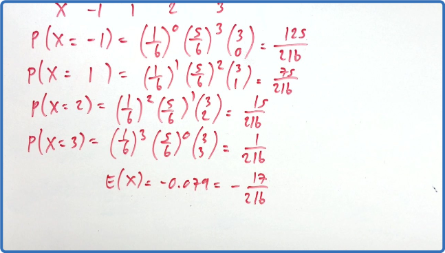 X -1 1 2 3
P(X = -1) = (1/6)^0 (5/6)^3 (3 0) = 125/216
P(X = 1) = (1/6)^1 (5/6)^2 (3 1) = 75/216
P(X = 2) = (1/6)^2 (5/6)^1 (3 2) = 15/216
P(X = 3) = (1/6)^3 (5/6)^0 (3 3) = 1/216
E(X) = -0.079 = - 17/216